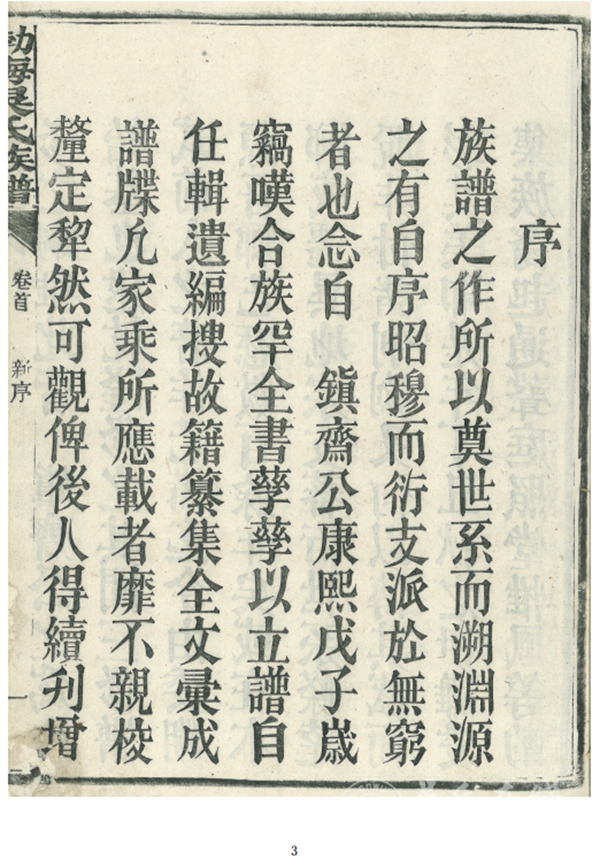 序
族譜之作所以奠世系而溯淵源
之有自序昭穆而衍支派於無窮
者也念自　鎮齋公康熙戊子歲
竊嘆合族罕全書孳孳以立譜自
任輯遺編搜故籍纂集全文彙成
譜牒凢家乘所應載者靡不親校
釐定犂然可觀俾後人得續刋增
渤海吳氏族譜
卷首
新序
一
3